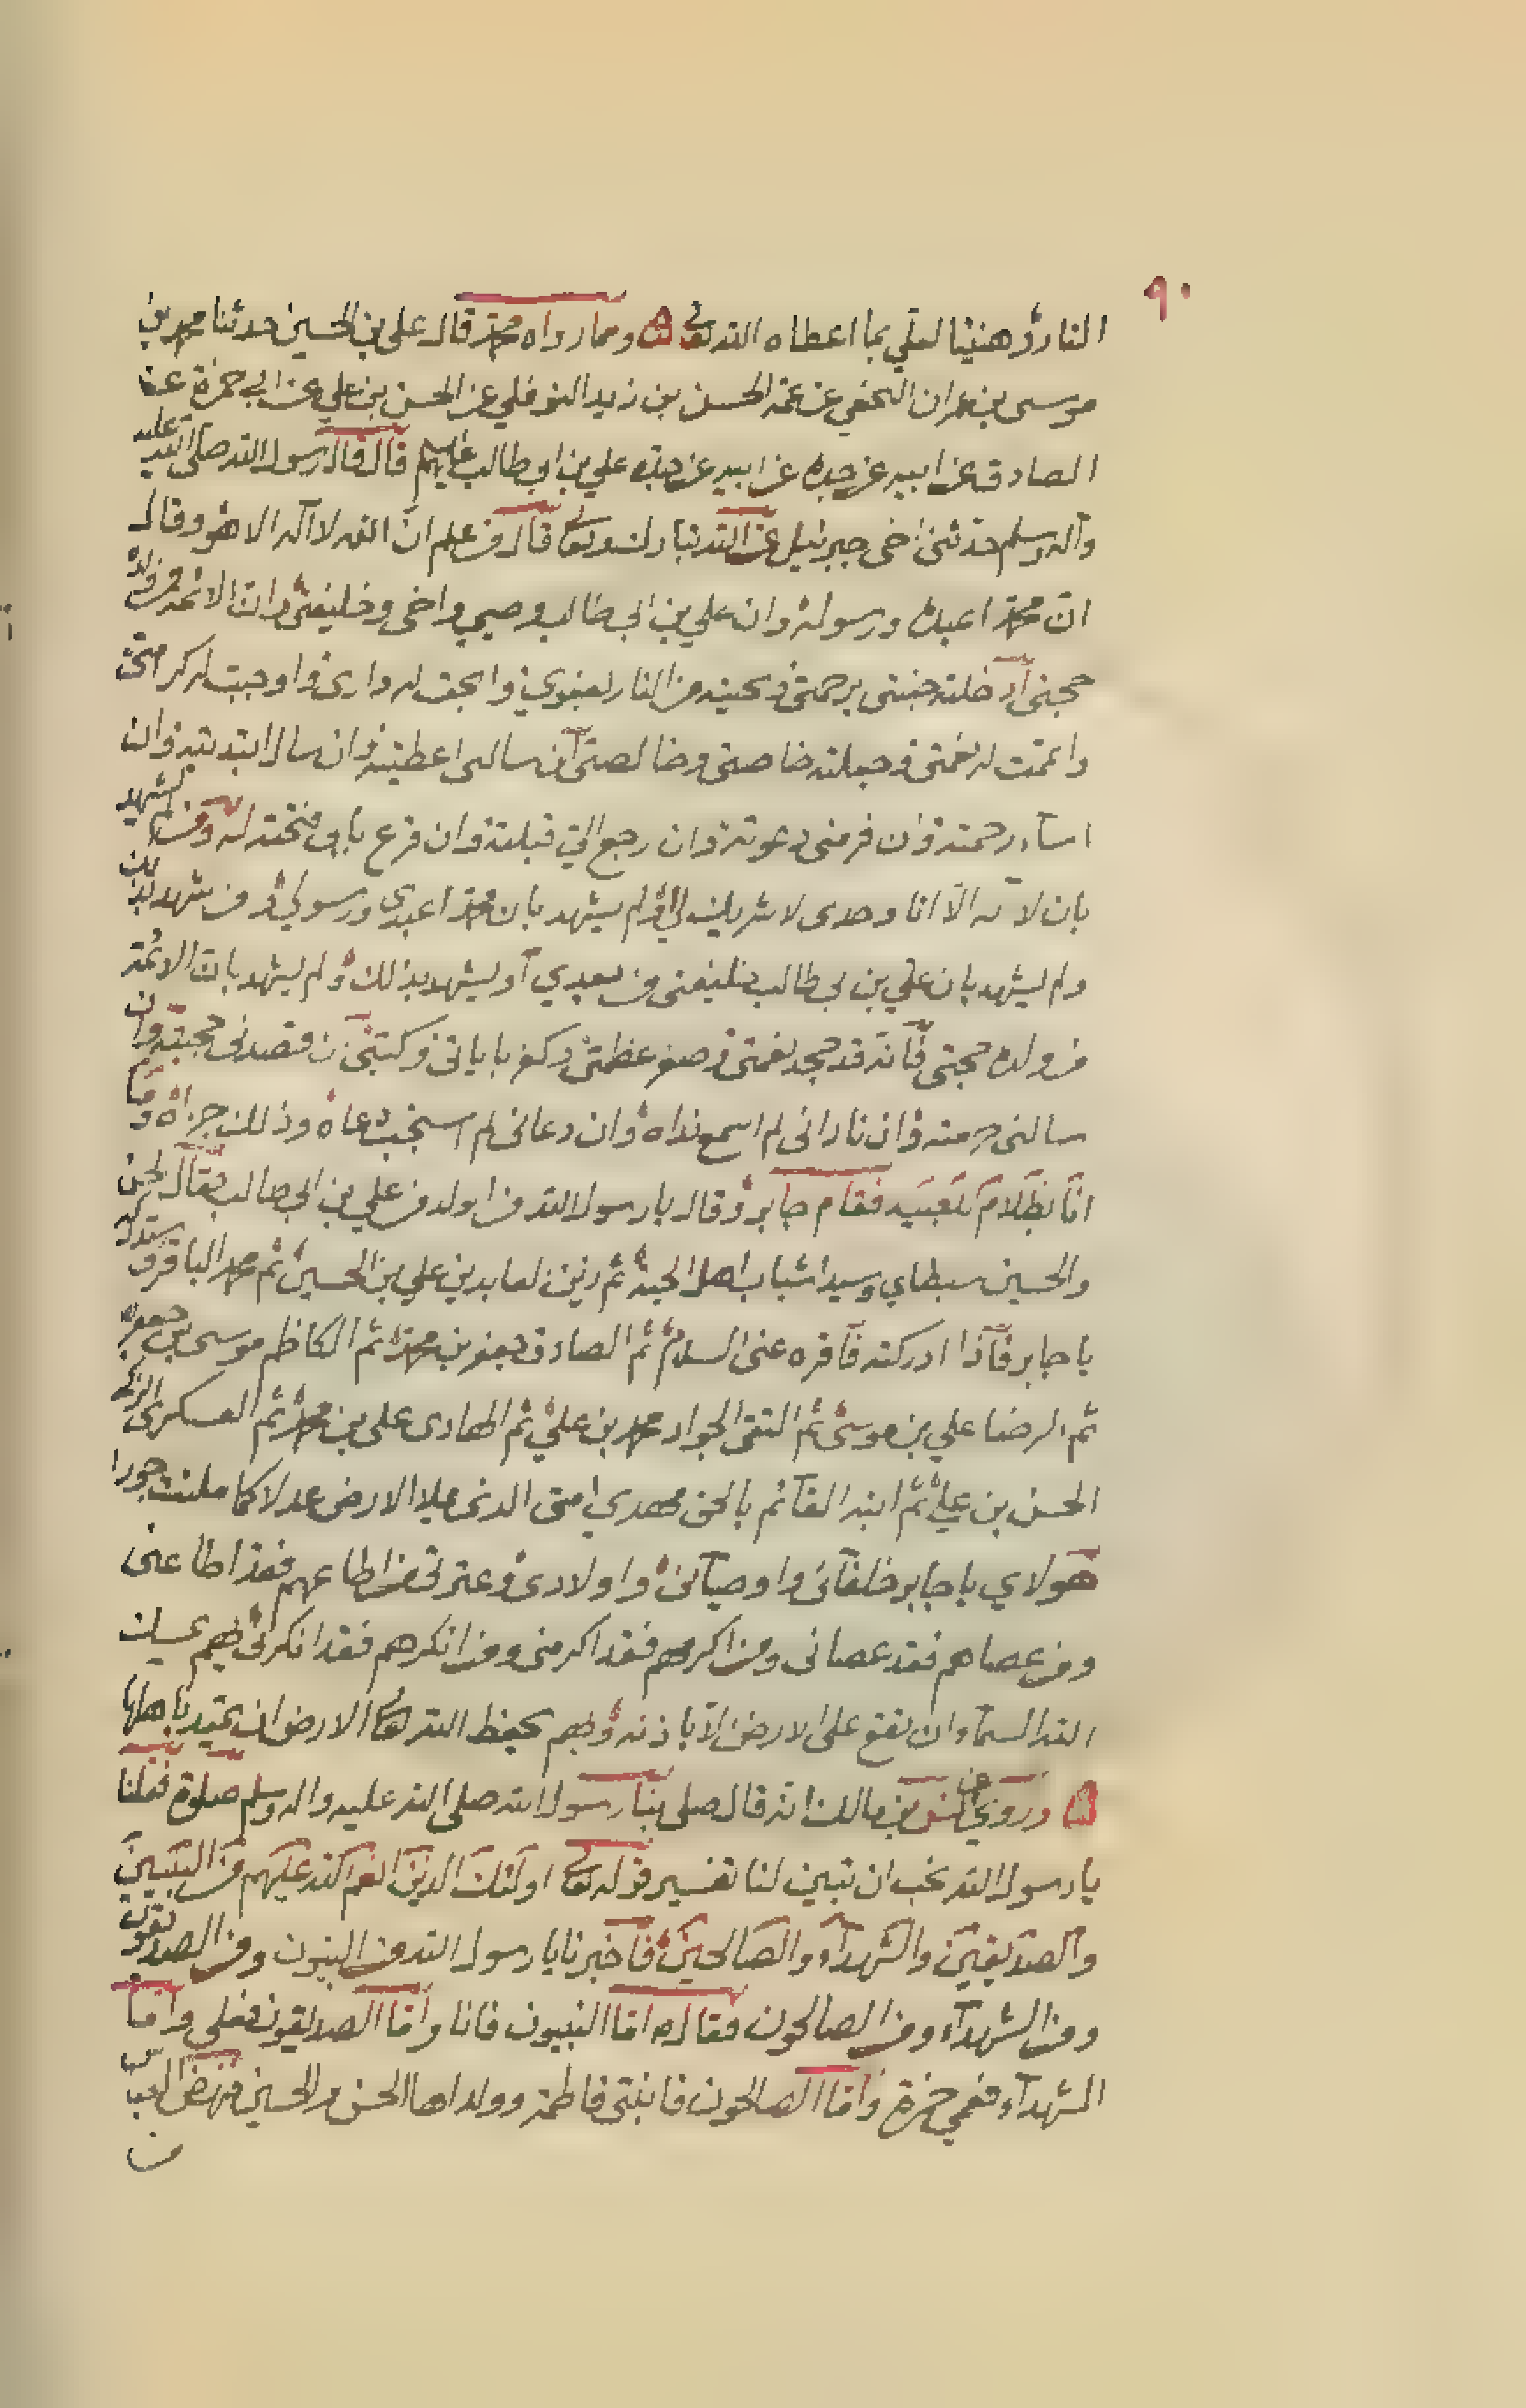 ٩٠
النار وهنيئا لعلي بما اعطاه الله تعالى ومما رواه محمد قال علي بن الحسين حدثنا محمد بن
موسى بن عمران النخعي عن عمه الحسن بن زيد النوفلي عن الحسن بن علي عن ابي حمزة عن
الصادق عن ابيه عن جده عن ابيه عن جده علي بن ابي طالب عليهم قال قال رسول الله صلى الله عليه
وآله وسلم حدثني اخي جبرئيل عن الله تبارك وتعالى قال من علم ان الله لا اله الا هو وقال
ان محمدا عبده ورسوله وان علي بن ابي طالب وصيي واخي وخليفتي وان الائمة من ولده
حججي ادخلته جنتي برحمتي ونجيته من النار بعفوي وابحت له داري واوجبت له كرامتي
واتممت له نعمتي وجعلته خاصتي وخالصتي ان سالني اعطيته وان سال ابتديته وان
اساء رحمته وان فر مني دعوته وان رجع الي قبلته وان قرع بابي فتحته له ومن لم يشهد
بان لا اله الا انا وحدي لا شريك لي ولم يشهد بان محمدا عبدي ورسولي ومن شهد بذلك
ولم يشهد بان علي بن ابي طالب خليفتي من بعدي او يشهد بذلك ولم يشهد بان الائمة
من ولده حججي فانه قد جحد نعمتي وصغر عظمتي وكفر باياتي وكتبي ان قصدني حجبته وان
سالني حرمته وان ناداني لم اسمع نداه وان دعاني لم استجب دعاه وذلك جزاه وما
انا بظلام للعبيد فقام جابر وقال يا رسول الله من اولد من علي بن ابي طالب فقال الحسن
والحسين سبطاي وسيدا شباب اهل الجنة ثم زين العابدين علي بن الحسين ثم محمد الباقر وستدركه
يا جابر فاذا ادركته فاقره عني السلام ثم الصادق جعفر بن محمد ثم الكاظم موسى بن جعفر
ثم الرضا علي بن موسى ثم التقي الجواد محمد بن علي ثم الهادي علي بن محمد ثم العسكري الزكي
الحسن بن علي ثم ابنه القائم بالحق مهدي امتي الذي يملا الارض عدلا كما ملئت جورا
هولاي يا جابر خلفائي واوصيائي واولادي وعترتي من اطاعهم فقد اطاعني
ومن عصاهم فقد عصاني ومن اكرمهم فقد اكرمني ومن انكرهم فقد انكرني بهم يمسك
الله السمآء ان تقع على الارض الا باذنه وبهم يحفظ الله تعالى الارض ان تميد باهلها
وروي عن انس بن مالك انه قال صلى بنا رسول الله صلى الله عليه واله وسلم صلوة فقلنا
يا رسول الله نحب ان تبين لنا تفسير قوله تعالى اولئك الذين انعم الله عليهم من النبيين
والصديقين والشهدآء والصالحين فاخبرنا يا رسول الله من النبيون ومن الصديقون
ومن الشهدآء ومن الصالحون فقال ص اما النبيون فانا واما الصديقون فعلي واما
الشهدآء فعمي حمزة واما الصالحون فابنتي فاطمة وولداها الحسن والحسين فنهض العباس
من